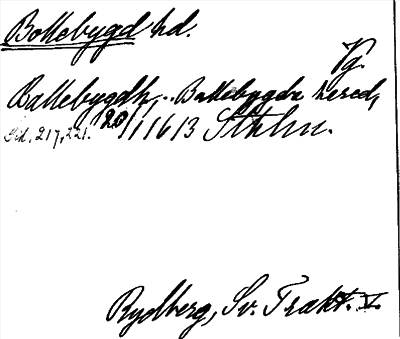 Bollebygd hd.
Vg.
Ballebygdh, .. Ballebygdx hered,
Sid. 217, 221. 20/1 1613 Sthlm.
Rydberg, Sv. Trakt. V.